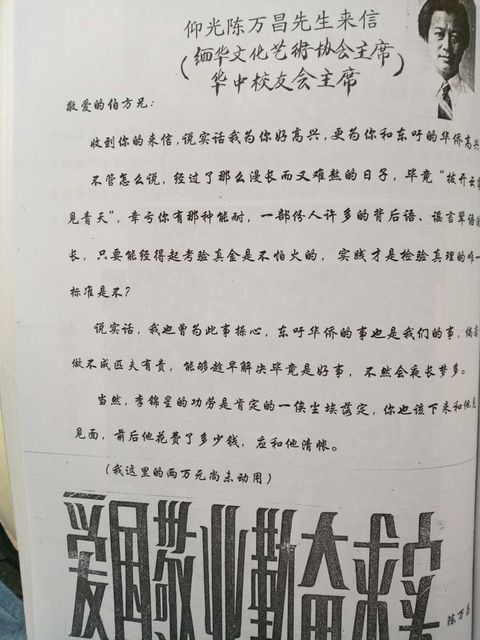 仰光陈万昌先生来信
（缅华文化艺术协会主席
华中校友会主席）
敬爱的伯方兄：
收到你的来信，说实话我为你好高兴，更为你和东吁的华侨高兴
不管怎么说，经过了那么漫长而又难熬的日子，毕竟“拔开云
见青天”，幸亏你有那种能耐，一部份人许多的背后语、谣言
长，只要能经得起考验真金是不怕火的，实践才是检验真理的唯一
标准是不？
说实话，我也曾为此事操心，东吁华侨的事也是我们的事，倘若
做不成匹夫有责，能够趁早解决毕竟是好事，不然会夜长梦多。
当然，李锦星的功劳是肯定的一俟尘埃落定，你也该下来和他见
见面，前后他花费了多少钱，应和他清帐。
（我这里的两万元尚未动用）
爱国敬业勤奋求实
陈万昌